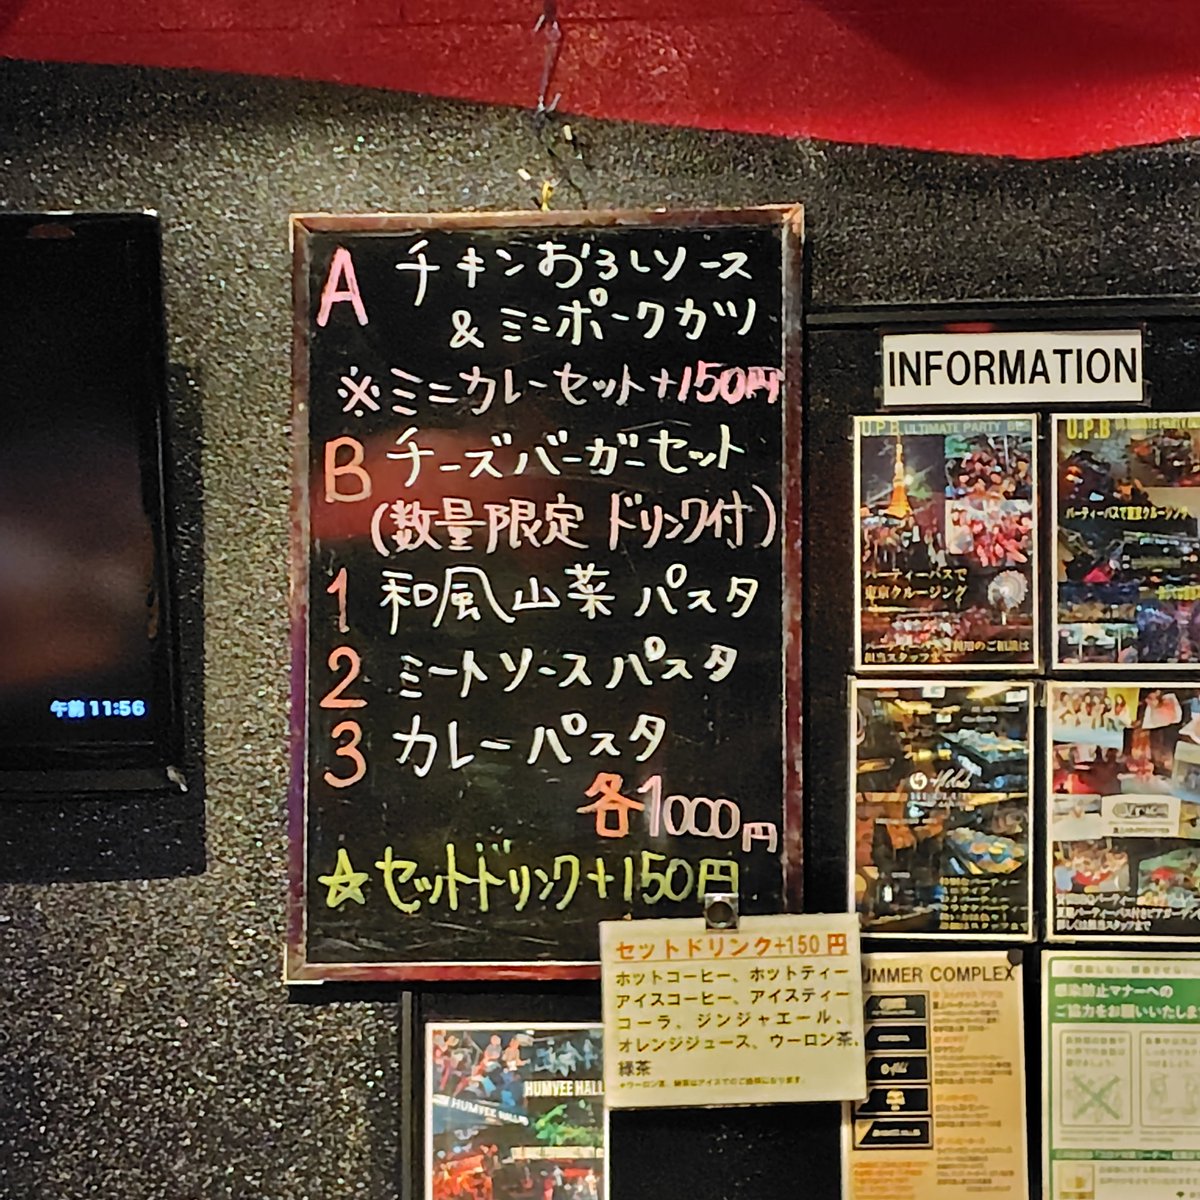 A チキンおろしソース
&ミニポークカツ
※ミニカレーセット+150円
B チーズバーガーセット
(数量限定 ドリンク付)
1 和風山菜パスタ
2 ミートソースパスタ
3 カレーパスタ
各1000円
☆セットドリンク+150円
セットドリンク+150円
ホットコーヒー、ホットティー
アイスコーヒー、アイスティー
コーラ、ジンジャエール、
オレンジジュース、ウーロン茶、
緑茶
午前11:56
INFORMATION
U.P.B ULTIMATE PARTY
パーティーバスで
東京クルージング
担当スタッフまで
U.P.B
パーティーバスで東京クルージング
UMMER COMPLEX
感染防止マナーへの
ご協力をお願いいたします
HUMVEE HALL
HUMVEE HALL